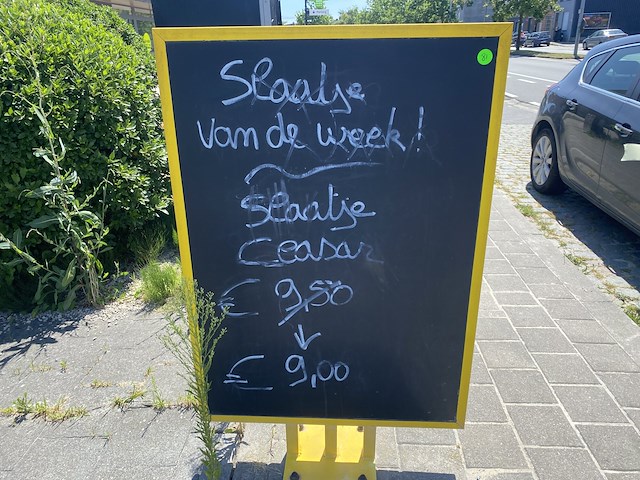 Slaatje
van de week!
Slaatje
Ceasar
€ 9,50
↓
€ 9,00